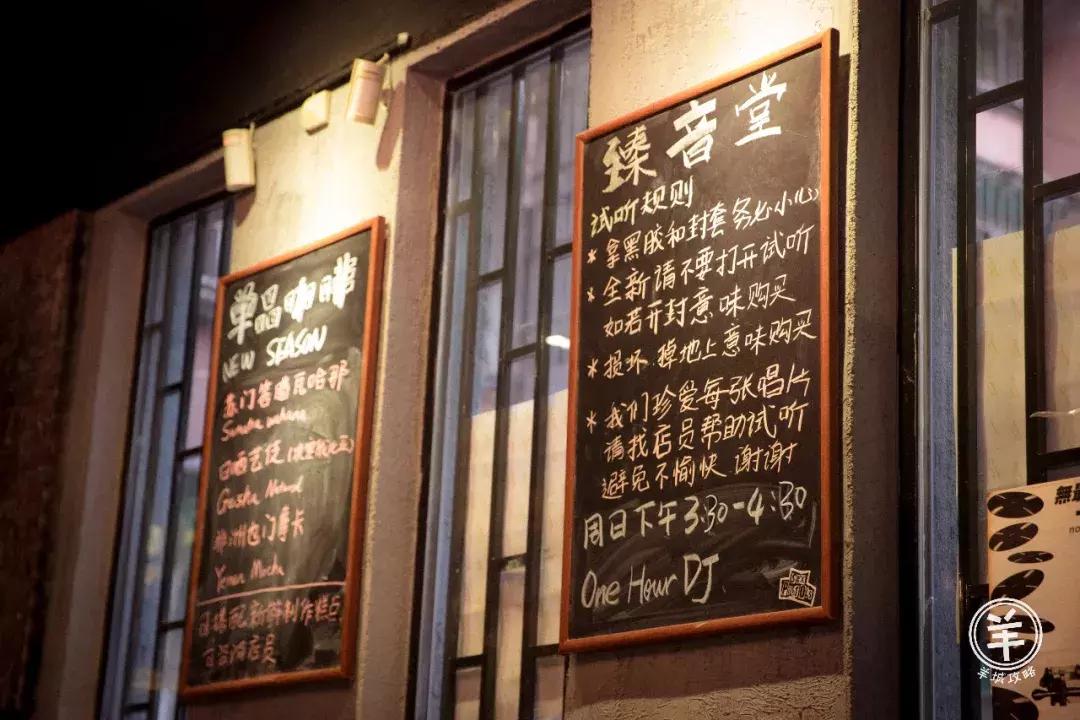 单品咖啡
NEW SEASON
苏门答腊瓦哈那
Gesha
也门摩卡
Yemen Mocha
新鲜制作糕点
店员
臻音堂
试听规则
* 拿黑胶和封套务必小心
* 全新请不要打开试听
如若开封意味购买
* 损坏.掉地上意味购买
* 我们珍爱每张唱片
请找店员帮助试听
避免不愉快 谢谢
周日下午3:30-4:30
One Hour DJ
無
no
羊
羊城攻略